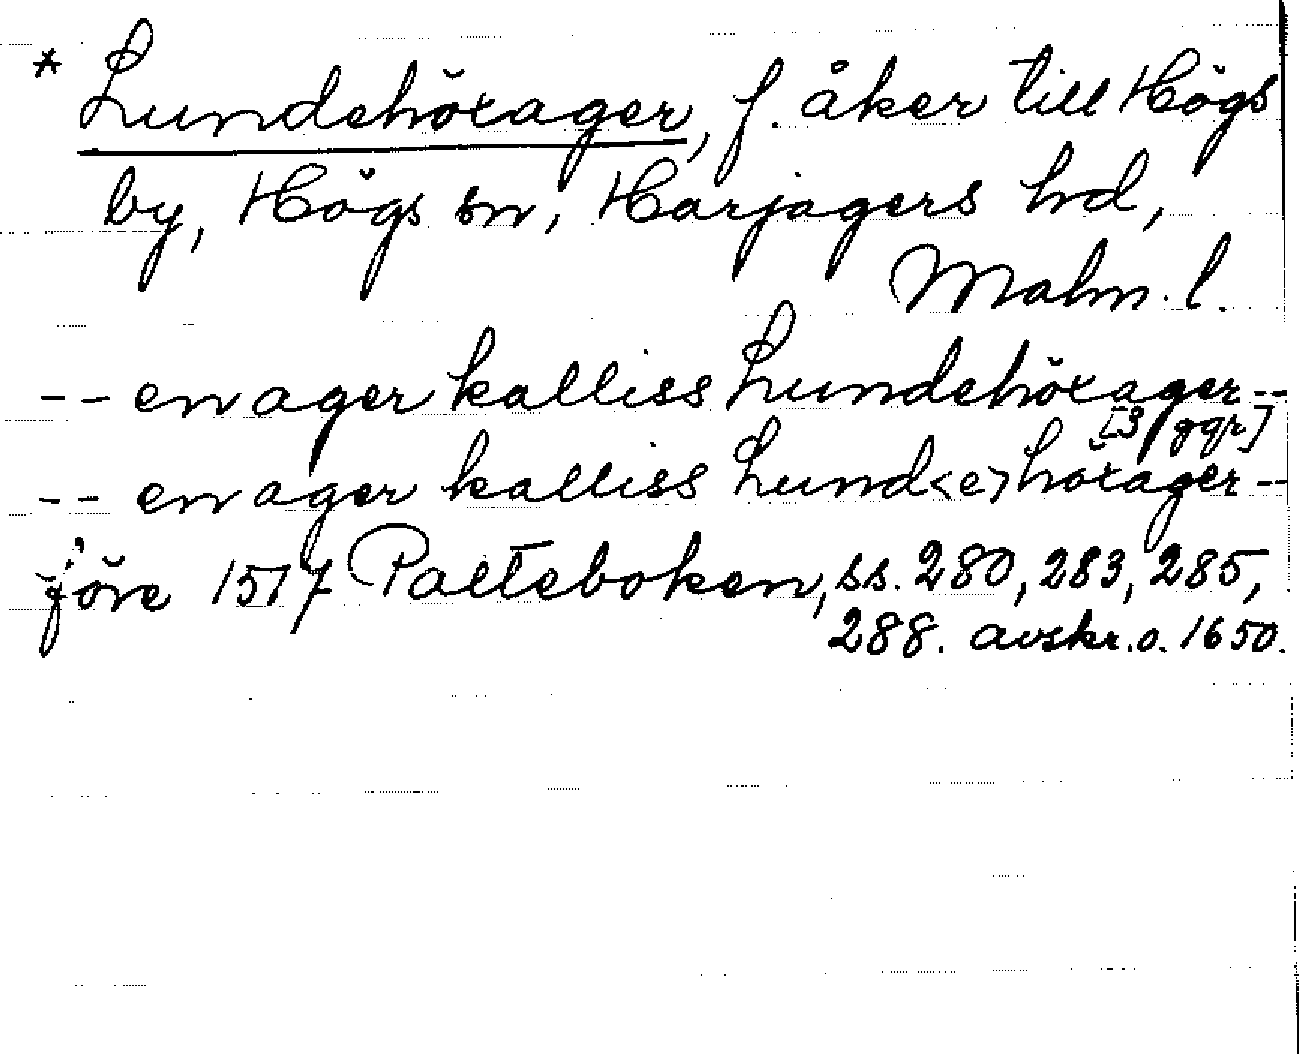 * Lundehöxager, f. åker till Högs
by, Högs sn, Harjagers hd,
Malm. l.
-- en ager kalliss Lundehöxager --
[3 ggr]
-- en ager kalliss Lund<e>höxager --
före 1517 Palteboken, ss. 280, 283, 285,
288. avskr. o. 1650.